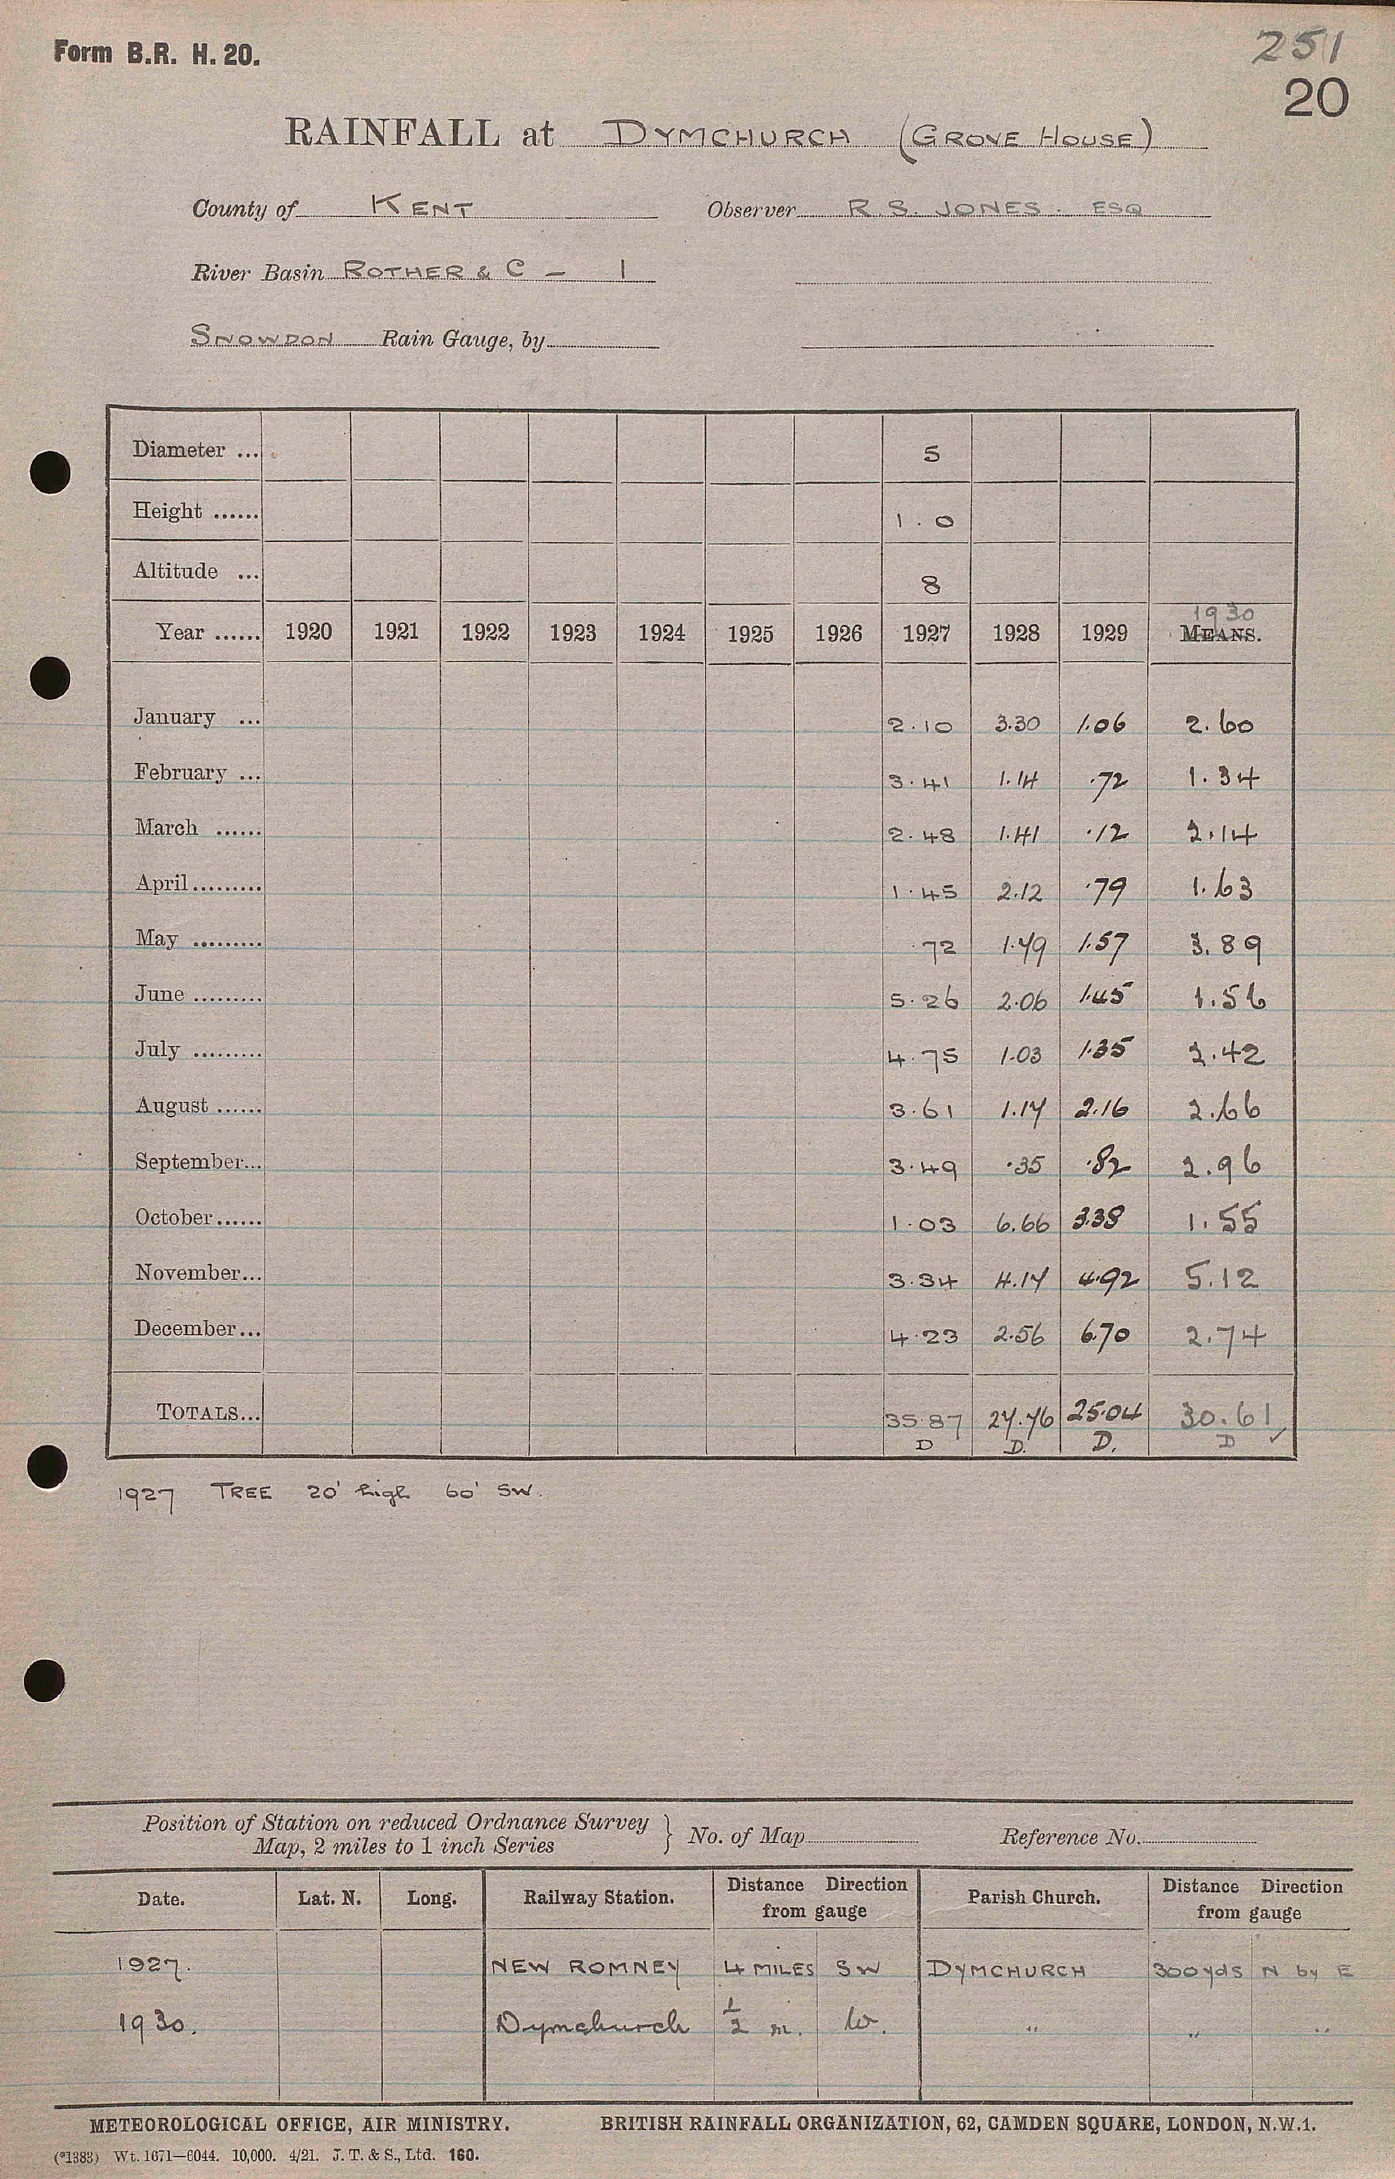 Form B.R. H. 20.
251
20
RAINFALL at DYMCHURCH (GROVE HOUSE)
County of KENT Observer R.S. JONES. ESQ
River Basin ROTHER & C – 1
SNOWDON Rain Gauge, by
Diameter ... 5
Height ...... 1.0
Altitude ... 8
1930
Year ...... 1920 1921 1922 1923 1924 1925 1926 1927 1928 1929 MEANS.
January ... 2.10 3.30 1.06 2.60
February ... 3.41 1.14 .72 1.34
March ...... 2.48 1.41 .12 2.14
April......... 1.45 2.12 .79 1.63
May ......... .72 1.79 1.57 3.89
June ......... 5.26 2.06 1.45 1.56
July ......... 4.75 1.03 1.35 2.42
August ...... 3.61 1.17 2.16 2.66
September... 3.49 .35 .82 2.96
October...... 1.03 6.66 3.38 1.55
November... 3.34 4.17 4.92 5.12
December... 4.23 2.56 6.70 2.74
TOTALS... 35.87 27.76 25.04 30.61 ✓
D D. D. D
1927 TREE 20' high 60' SW.
Position of Station on reduced Ordnance Survey
Map, 2 miles to 1 inch Series } No. of Map Reference No.
Date. Lat. N. Long. Railway Station. Distance Direction from gauge Parish Church. Distance Direction from gauge
1927. NEW ROMNEY 4 MILES SW DYMCHURCH 300 yds N by E
1930. Dymchurch ½ m. W. " " "
METEOROLOGICAL OFFICE, AIR MINISTRY. BRITISH RAINFALL ORGANIZATION, 62, CAMDEN SQUARE, LONDON, N.W.1.
(*1383) Wt. 1671—6044. 10,000. 4/21. J. T. & S., Ltd. 160.